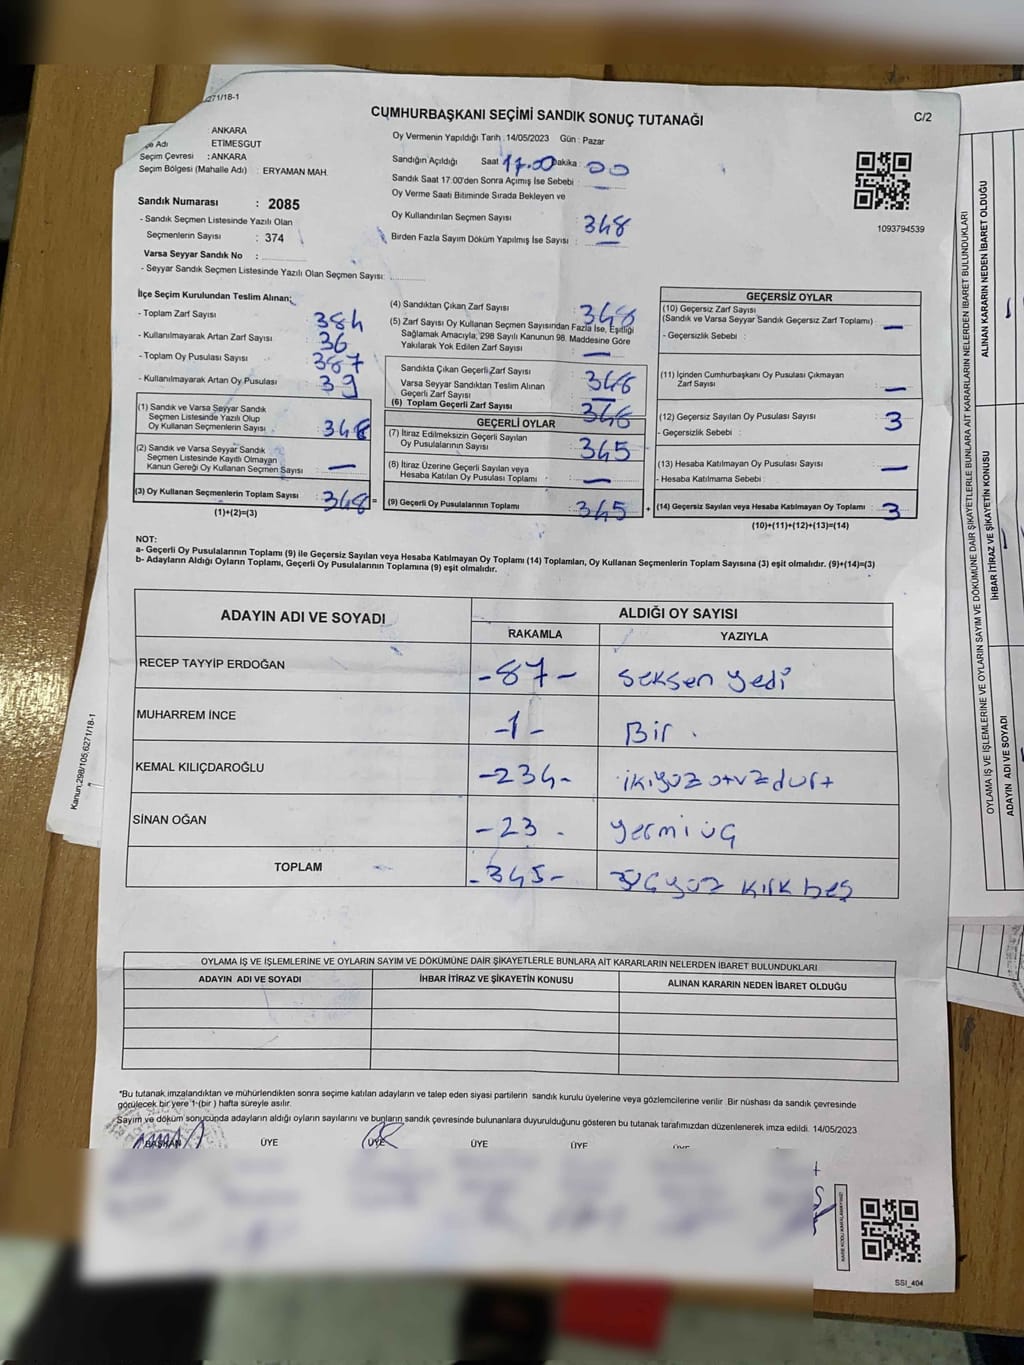 271/18-1
CUMHURBAŞKANI SEÇİMİ SANDIK SONUÇ TUTANAĞI
C/2
: ANKARA
çe Adı ETİMESGUT
Seçim Çevresi : ANKARA
Seçim Bölgesi (Mahalle Adı) : ERYAMAN MAH.
Oy Vermenin Yapıldığı Tarih : 14/05/2023 Gün : Pazar
Sandığın Açıldığı Saat 17.00 Dakika : 00
Sandık Saat 17:00'den Sonra Açımış İse Sebebi :
Oy Verme Saati Bitiminde Sırada Bekleyen ve
Oy Kullandırılan Seçmen Sayısı : 348
Birden Fazla Sayım Döküm Yapılmış İse Sayısı : —
1093794539
Sandık Numarası : 2085
- Sandık Seçmen Listesinde Yazılı Olan
Seçmenlerin Sayısı : 374
Varsa Seyyar Sandık No :
- Seyyar Sandık Seçmen Listesinde Yazılı Olan Seçmen Sayısı:
İlçe Seçim Kurulundan Teslim Alınan;
- Toplam Zarf Sayısı : 384
- Kullanılmayarak Artan Zarf Sayısı : 36
- Toplam Oy Pusulası Sayısı : 387
- Kullanılmayarak Artan Oy Pusulası : 39
(1) Sandık ve Varsa Seyyar Sandık
Seçmen Listesinde Yazılı Olup
Oy Kullanan Seçmenlerin Sayısı : 348
(2) Sandık ve Varsa Seyyar Sandık
Seçmen Listesinde Kayıtlı Olmayan
Kanun Gereği Oy Kullanan Seçmen Sayısı : —
(3) Oy Kullanan Seçmenlerin Toplam Sayısı : 348 =
(1)+(2)=(3)
(4) Sandıktan Çıkan Zarf Sayısı : 348
(5) Zarf Sayısı Oy Kullanan Seçmen Sayısından Fazla İse, Eşitliği
Sağlamak Amacıyla, 298 Sayılı Kanunun 98. Maddesine Göre
Yakılarak Yok Edilen Zarf Sayısı : —
Sandıkta Çıkan Geçerli Zarf Sayısı : 348
Varsa Seyyar Sandıktan Teslim Alınan
Geçerli Zarf Sayısı : —
(6) Toplam Geçerli Zarf Sayısı : 348
GEÇERLİ OYLAR
(7) İtiraz Edilmeksizin Geçerli Sayılan
Oy Pusulalarının Sayısı : 345
(8) İtiraz Üzerine Geçerli Sayılan veya
Hesaba Katılan Oy Pusulası Toplamı : —
(9) Geçerli Oy Pusulalarının Toplamı : 345 +
GEÇERSİZ OYLAR
(10) Geçersiz Zarf Sayısı
(Sandık ve Varsa Seyyar Sandık Geçersiz Zarf Toplamı) : —
- Geçersizlik Sebebi :
(11) İçinden Cumhurbaşkanı Oy Pusulası Çıkmayan
Zarf Sayısı : —
(12) Geçersiz Sayılan Oy Pusulası Sayısı : 3
- Geçersizlik Sebebi :
(13) Hesaba Katılmayan Oy Pusulası Sayısı : —
- Hesaba Katılmama Sebebi :
(14) Geçersiz Sayılan veya Hesaba Katılmayan Oy Toplamı : 3
(10)+(11)+(12)+(13)=(14)
NOT:
a- Geçerli Oy Pusulalarının Toplamı (9) ile Geçersiz Sayılan veya Hesaba Katılmayan Oy Toplamı (14) Toplamları, Oy Kullanan Seçmenlerin Toplam Sayısına (3) eşit olmalıdır. (9)+(14)=(3)
b- Adayların Aldığı Oyların Toplamı, Geçerli Oy Pusulalarının Toplamına (9) eşit olmalıdır.
ADAYIN ADI VE SOYADI ALDIĞI OY SAYISI
RAKAMLA YAZIYLA
RECEP TAYYİP ERDOĞAN -87- seksen yedi
MUHARREM İNCE -1- Bir .
KEMAL KILIÇDAROĞLU -234- ikiyüz otuz dört
SİNAN OĞAN -23- yermi üç
TOPLAM -345- üçyüz kırk beş
OYLAMA İŞ VE İŞLEMLERİNE VE OYLARIN SAYIM VE DÖKÜMÜNE DAİR ŞİKAYETLERLE BUNLARA AİT KARARLARIN NELERDEN İBARET BULUNDUKLARI
ADAYIN ADI VE SOYADI İHBAR İTİRAZ VE ŞİKAYETİN KONUSU ALINAN KARARIN NEDEN İBARET OLDUĞU
*Bu tutanak imzalandıktan ve mühürlendikten sonra seçime katılan adayların ve talep eden siyasi partilerin sandık kurulu üyelerine veya gözlemcilerine verilir. Bir nüshası da sandık çevresinde
görülecek bir yere 1-(bir ) hafta süreyle asılır.
Sayım ve döküm sonucunda adayların aldığı oyların sayılarını ve bunların sandık çevresinde bulunanlara duyurulduğunu gösteren bu tutanak tarafımızdan düzenlenerek imza edildi. 14/05/2023
BAŞKAN ÜYE ÜYE ÜYE ÜYE
SSI_404
Kanun,298/105;6271/18-1
OYLAMA İŞ VE İŞLEMLERİNE VE OYLARIN SAYIM VE DÖKÜMÜNE DAİR ŞİKAYETLERLE BUNLARA AİT KARARLARIN NELERDEN İBARET BULUNDUKLARI
ADAYIN ADI VE SOYADI
İHBAR İTİRAZ VE ŞİKAYETİN KONUSU
ALINAN KARARIN NEDEN İBARET OLDUĞU